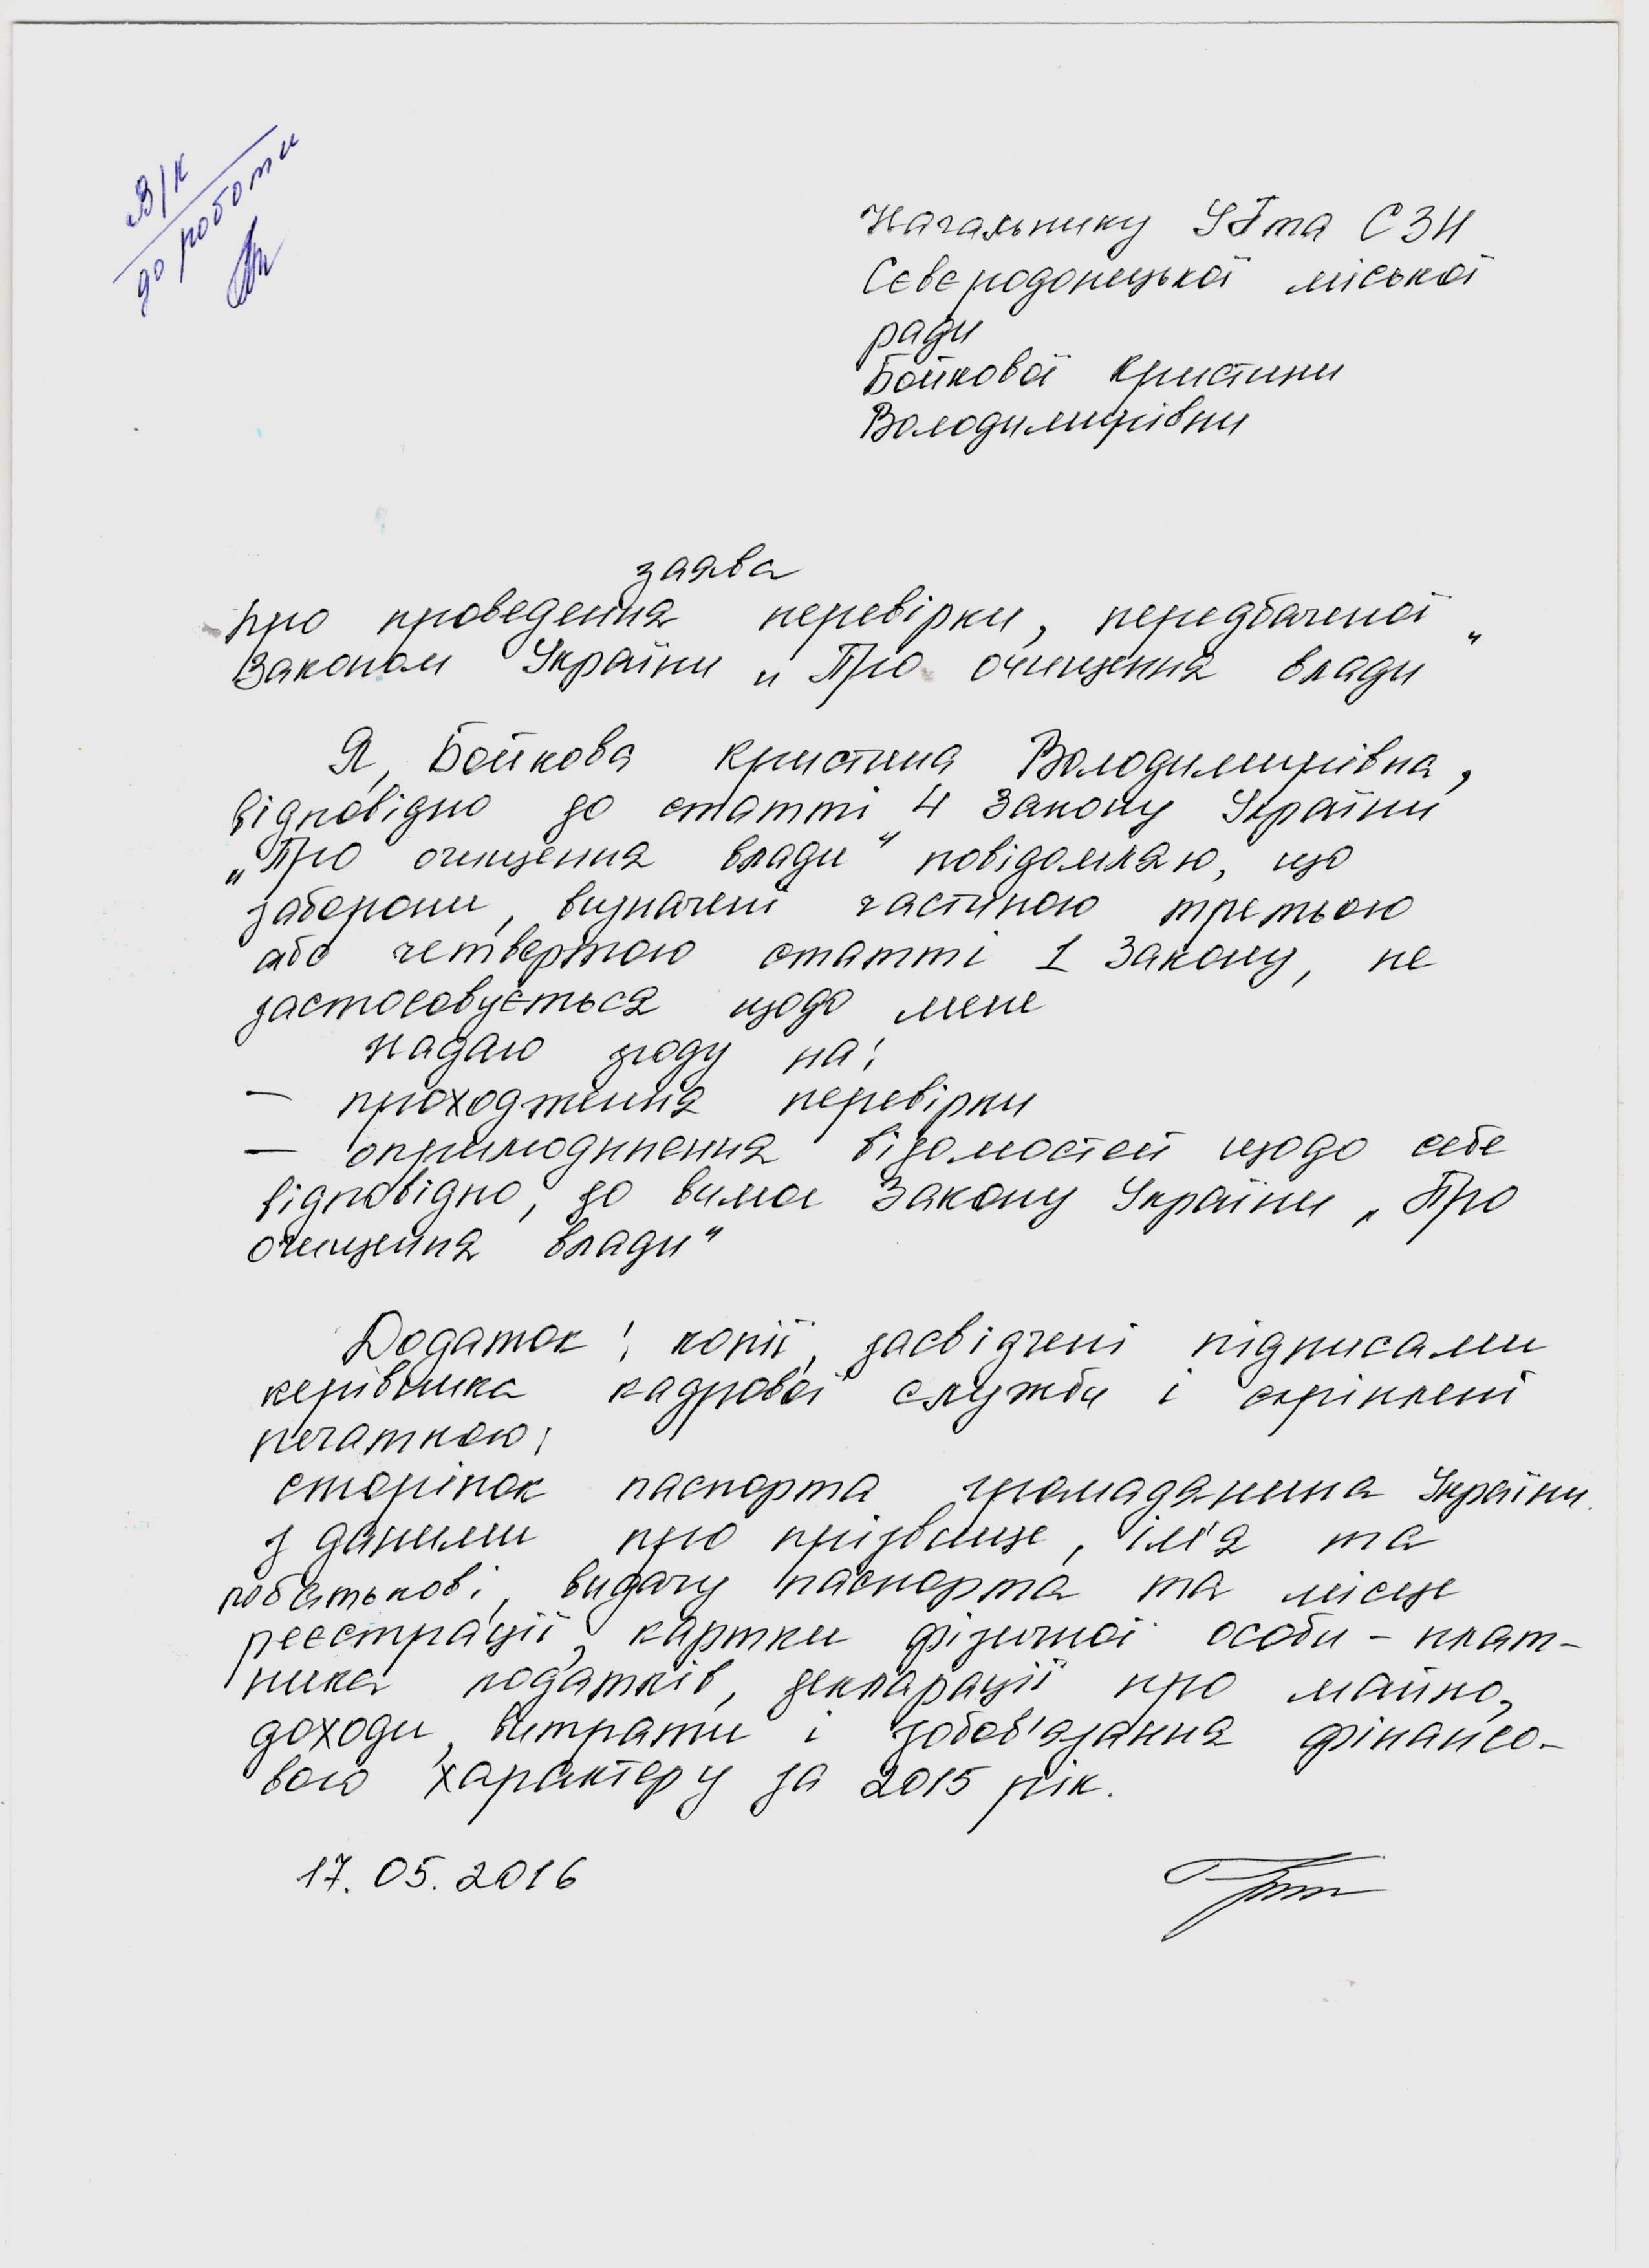 В/к
до роботи
Начальнику УПта СЗН
Сєвєродонецької міської
ради
Бойкової Кристини
Володимирівни
заява
про проведення перевірки, передбаченої
Законом України „Про очищення влади"
Я, Бойкова Кристина Володимирівна,
відповідно до статті 4 Закону України
„Про очищення влади" повідомляю, що
заборони, визначені частиною третьою
або четвертою статті 1 Закону, не
застосовується щодо мене
Надаю згоду на:
— проходження перевірки
— оприлюднення відомостей щодо себе
відповідно, до вимог Закону України „Про
очищення влади"
Додаток: копії, засвідчені підписами
керівника кадрової служби і скріплені
печаткою:
сторінок паспорта громадянина України
з даними про прізвище, ім'я та
побатькові, видачу паспорта та місце
реєстрації, картки фізичної особи - плат-
ника податків, декларації про майно,
доходи, витрати і зобов'язання фінансо-
вого характеру за 2015 рік.
17.05.2016